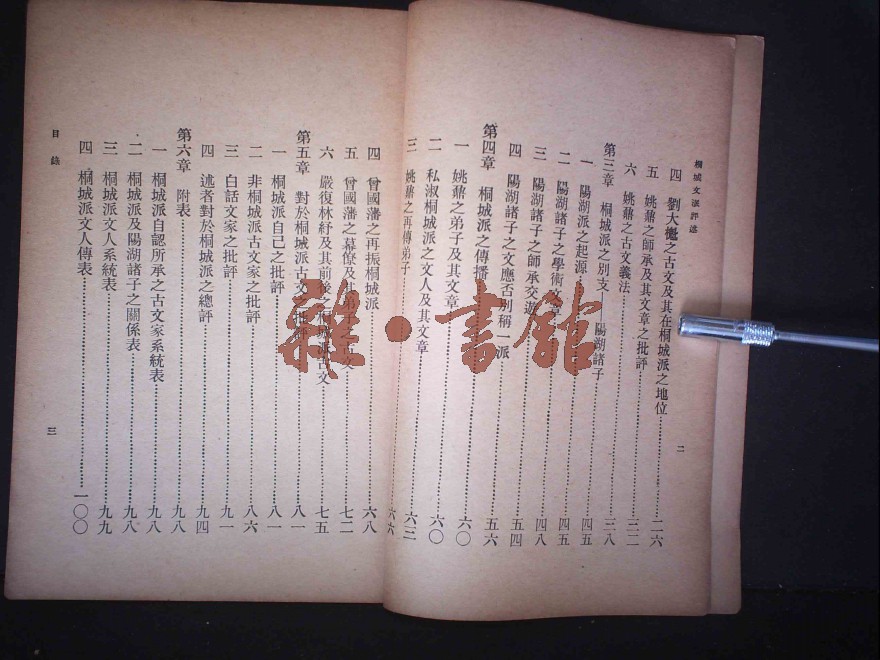 桐城文派評述
四 劉大櫆之古文及其在桐城派之地位 二六
五 姚鼐之師承及其文章之批評 三二
六 姚鼐之古文義法 三八
第三章 桐城派之別支——陽湖諸子
一 陽湖派之起源 四五
二 陽湖諸子之學術文章 四五
三 陽湖諸子之師承交遊 四八
四 陽湖諸子之文應否別稱一派 五四
第四章 桐城派之傳播 五六
一 姚鼐之弟子及其文章 六〇
二 私淑桐城派之文人及其文章 六〇
三 姚鼐之再傳弟子 六三
二
六六
四 曾國藩之再振桐城派 六八
五 曾國藩之幕僚及其 古文 七二
六 嚴復林紓及其前後之桐城派古文 七五
第五章 對於桐城派古文之批評 八一
一 桐城派自己之批評 八一
二 非桐城派古文家之批評 八六
三 白話文家之批評 九一
四 述者對於桐城派之總評 九四
第六章 附表 九八
一 桐城派自認所承之古文家系統表 九八
二 桐城派及陽湖諸子之關係表 九八
三 桐城派文人系統表 九九
四 桐城派文人傳表 一〇〇
目錄
三
雜·書館